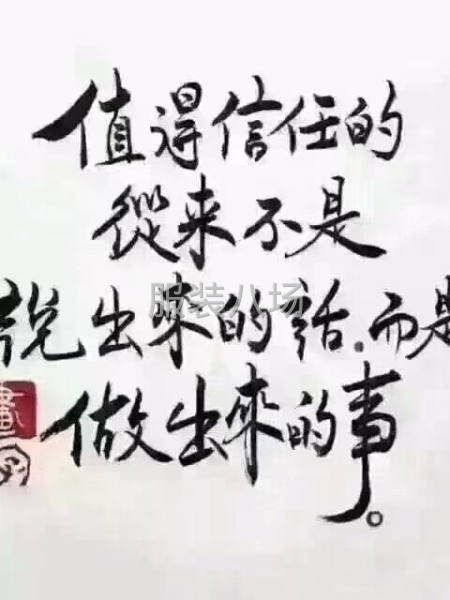 值得信任的
從来不是
說出來的話.而是
服装八场
做出來的事。